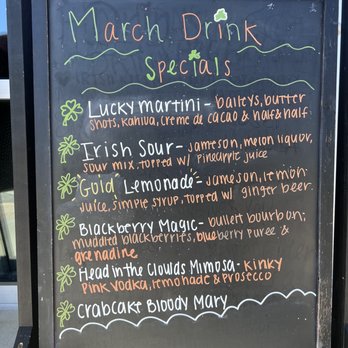 March Drink
Specials
Lucky Martini - baileys, butter
shots, Kahlua, creme de cacao & half & half
Irish Sour - jameson, melon liquor,
sour mix, topped w/ pineapple juice
"Gold" Lemonade - jameson, lemon
juice, simple syrup, topped w/ ginger beer
Blackberry Magic - bulleit bourbon,
muddled blackberries, blueberry puree &
grenadine
Head in the Clouds Mimosa - kinky
pink vodka, lemonade & prosecco
Crabcake Bloody Mary